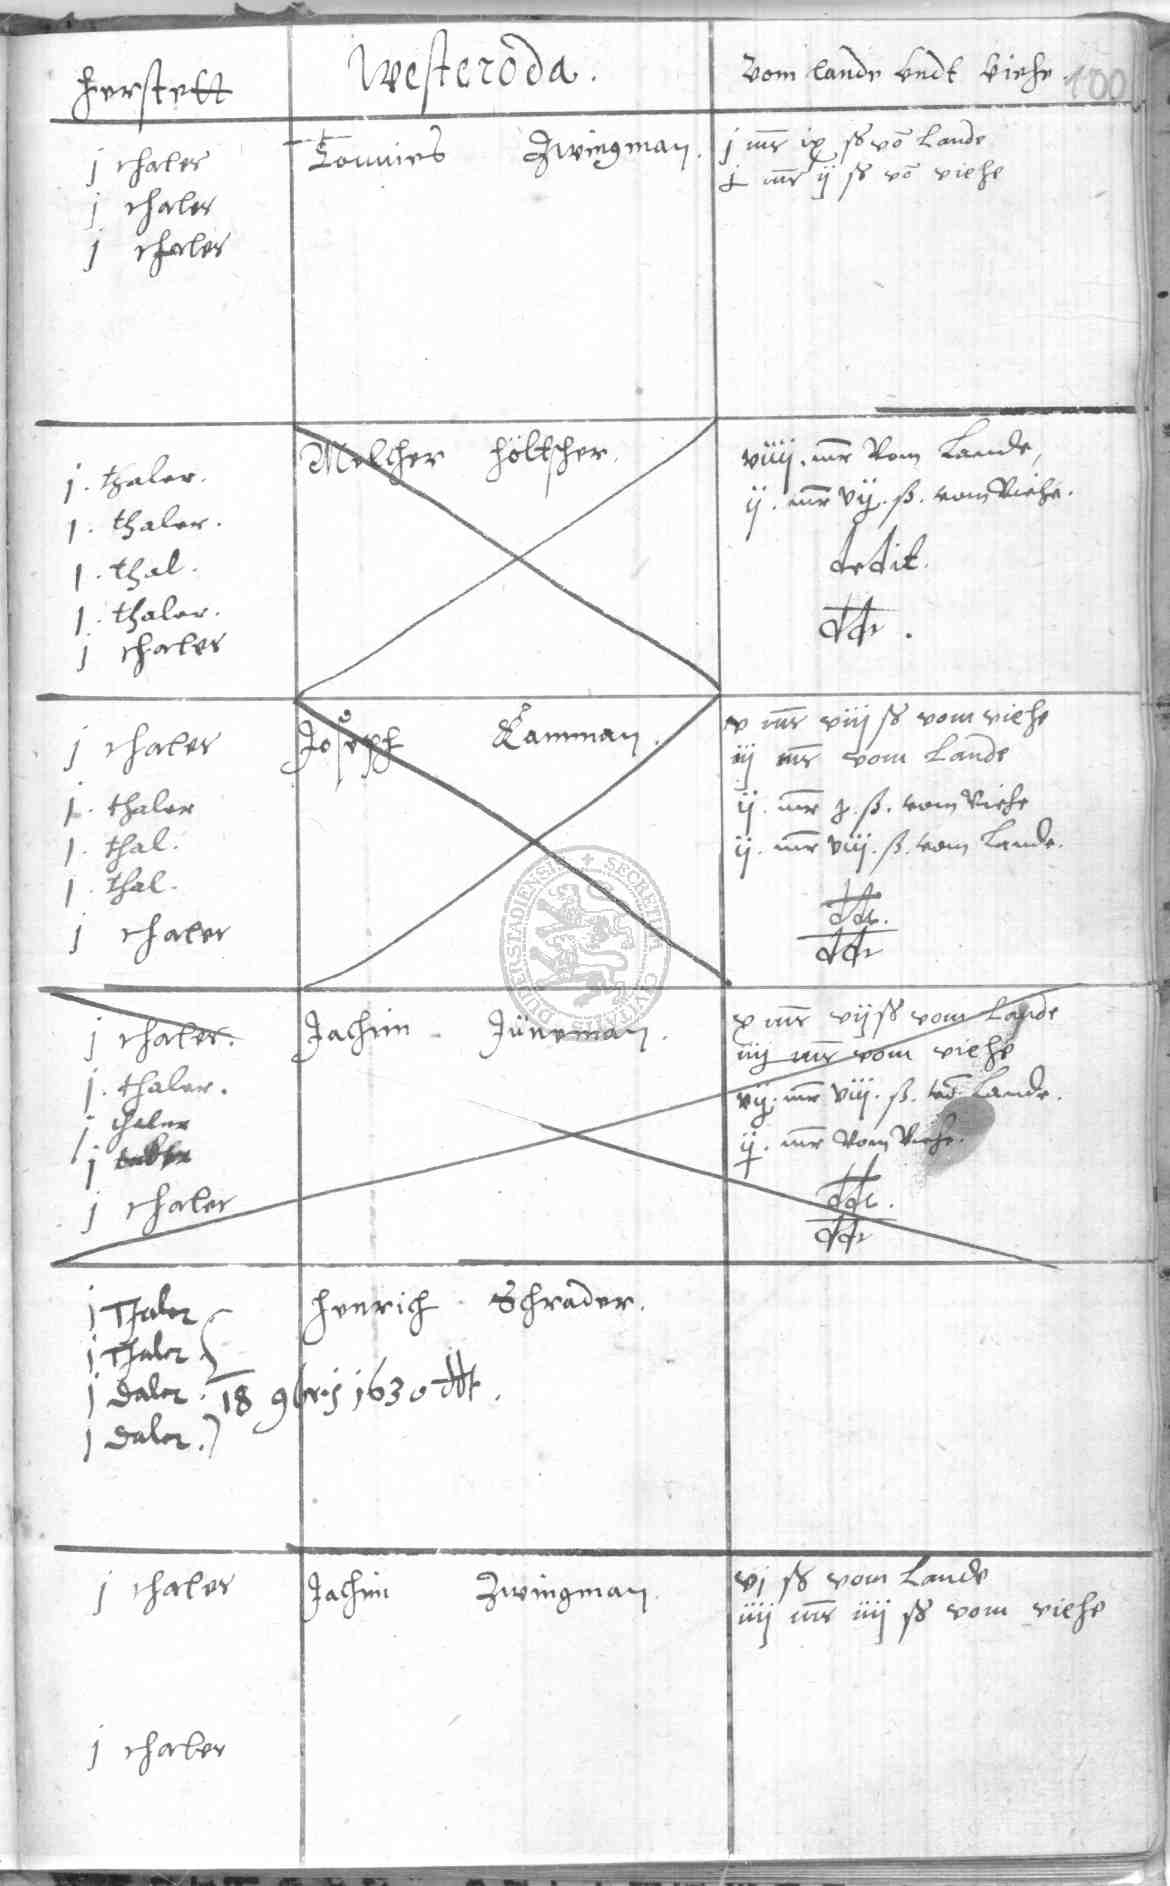 Herstett
Westeroda.
Vom lande vndt viehe. 100
j thaler
j thaler
j thaler
Tonnies Zwingman.
j mr ix ß vō Lande
j mr ij ß vō viehe
j. thaler.
j. thaler.
j. thal.
j. thaler.
j thaler
Melcher Höltscher.
viiij. mr Vom Lande,
ij. mr vij. ß. vom Viehe.
dedit.
ddt.
j thaler
j. thaler
j. thal.
j. thal.
j thaler
Joseph Kamman.
v mr viij ß vom viehe
iij mr vom Lande
ij. mr x. ß. vom Viehe
ij. mr viij. ß. vom Lande.
ddt.
ddt
SECRETUM CIVITATIS DUDERSTADIENSIS
j thaler.
j. thaler.
j thaler
j
j thaler
Jachim Jüneman.
x mr vij ß vom Lande
iiij mr vom viehe
vij. mr viij. ß. vō. Lande.
ij. mr Vom Viehe.
ddt.
ddt
j Thaler
j Thaler
j Daler.
j Daler.
Henrich Schrader.
18 9bris 1630 ddt.
j thaler
j thaler
Jachim Zwingman.
vj ß vom Lande
iiij mr iiij ß vom viehe